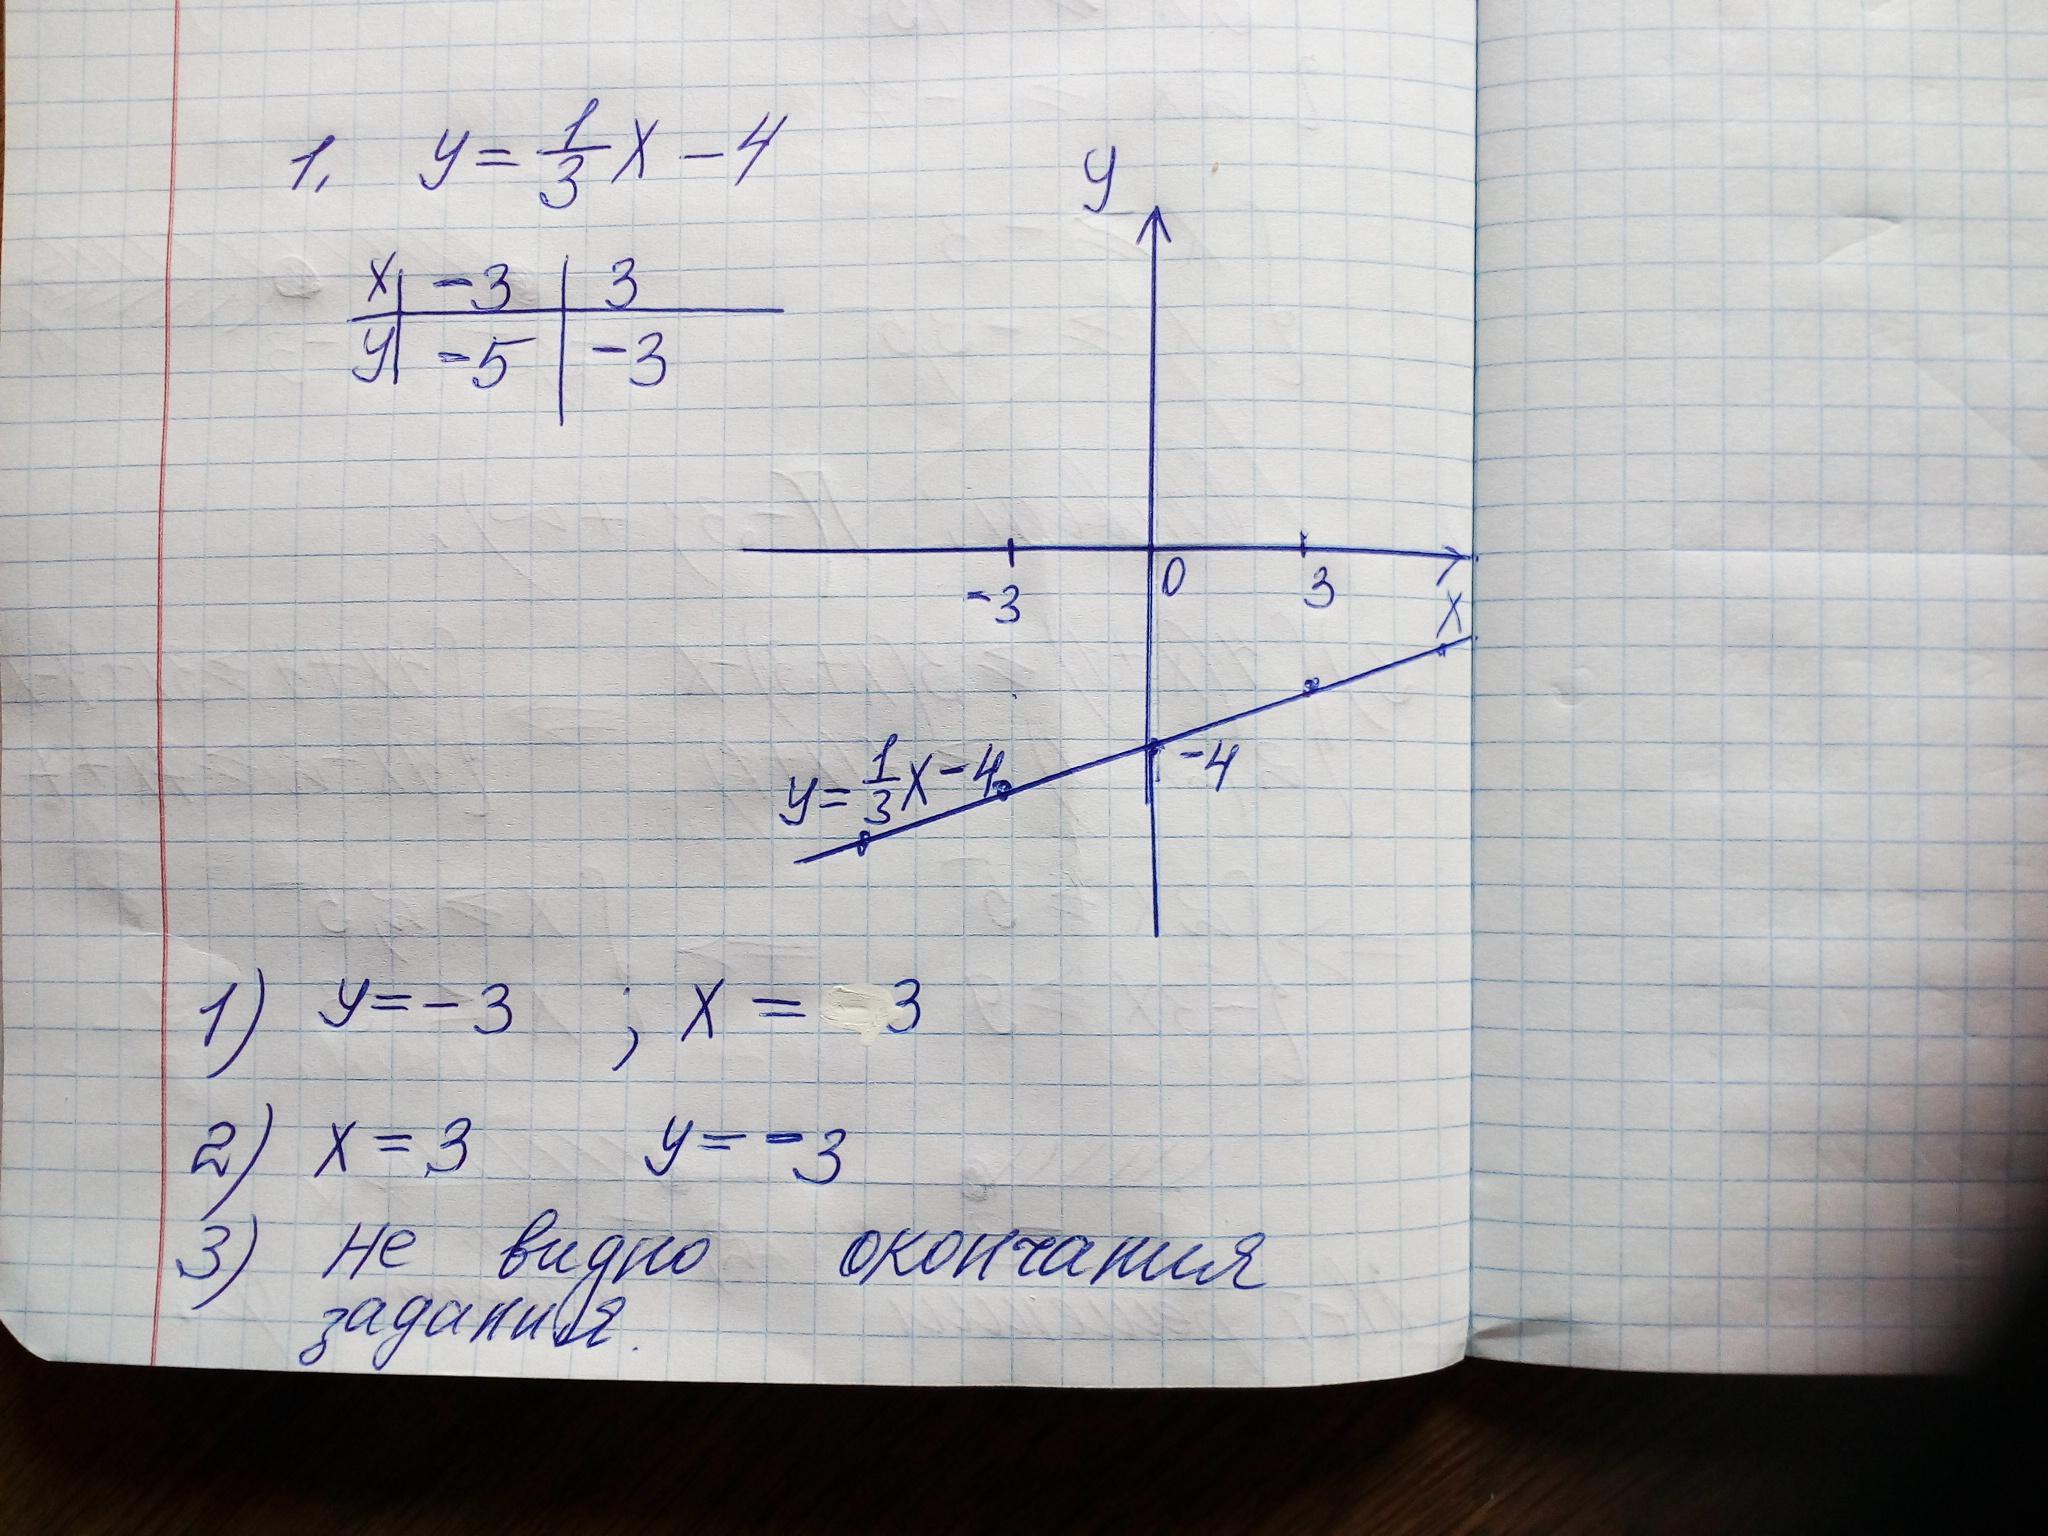 1. y = 1/3 x - 4
x | -3 | 3
y | -5 | -3
y
-3 0 3
x
y = 1/3 x - 4
-4
1) y = -3 ; x = 3
2) x = 3 y = -3
3) не видно окончания
задания.